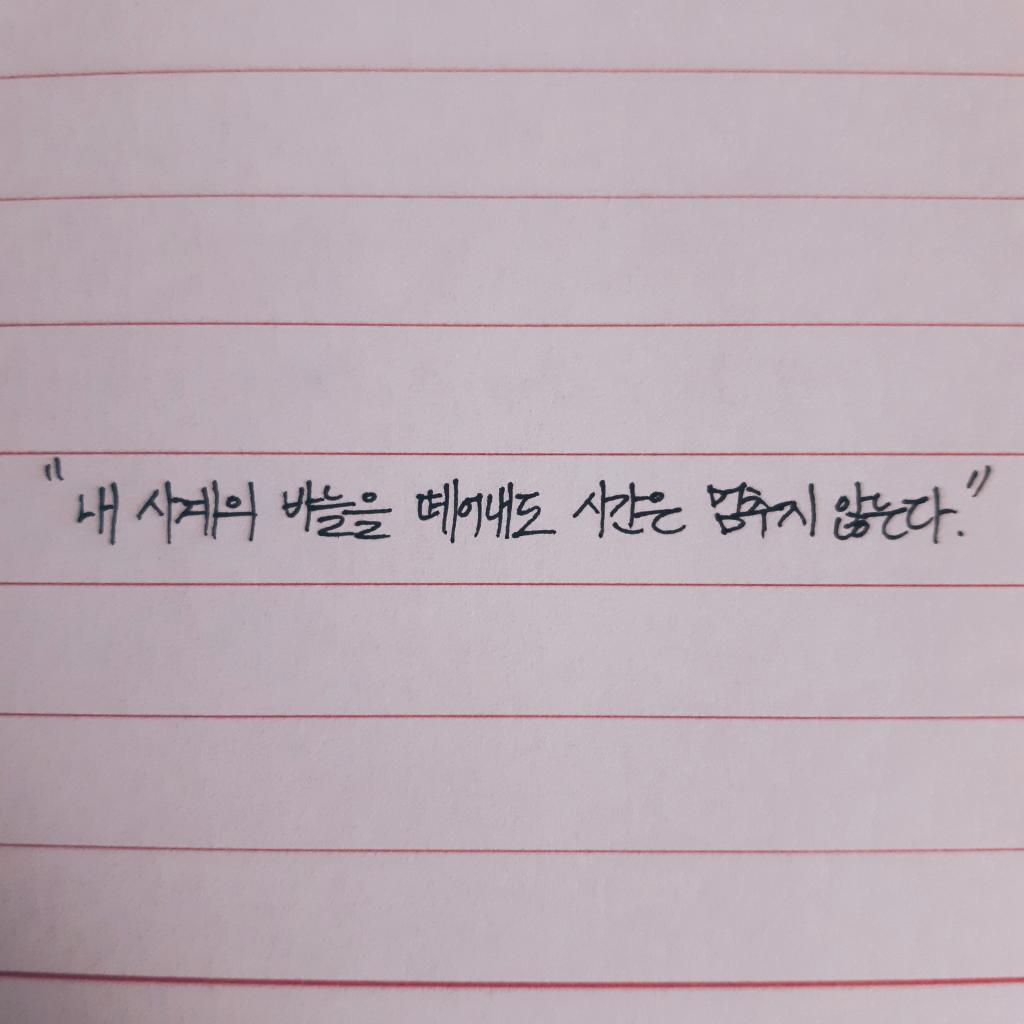 "내 시계의 바늘을 떼어내도 시간은 멈추지 않는다."